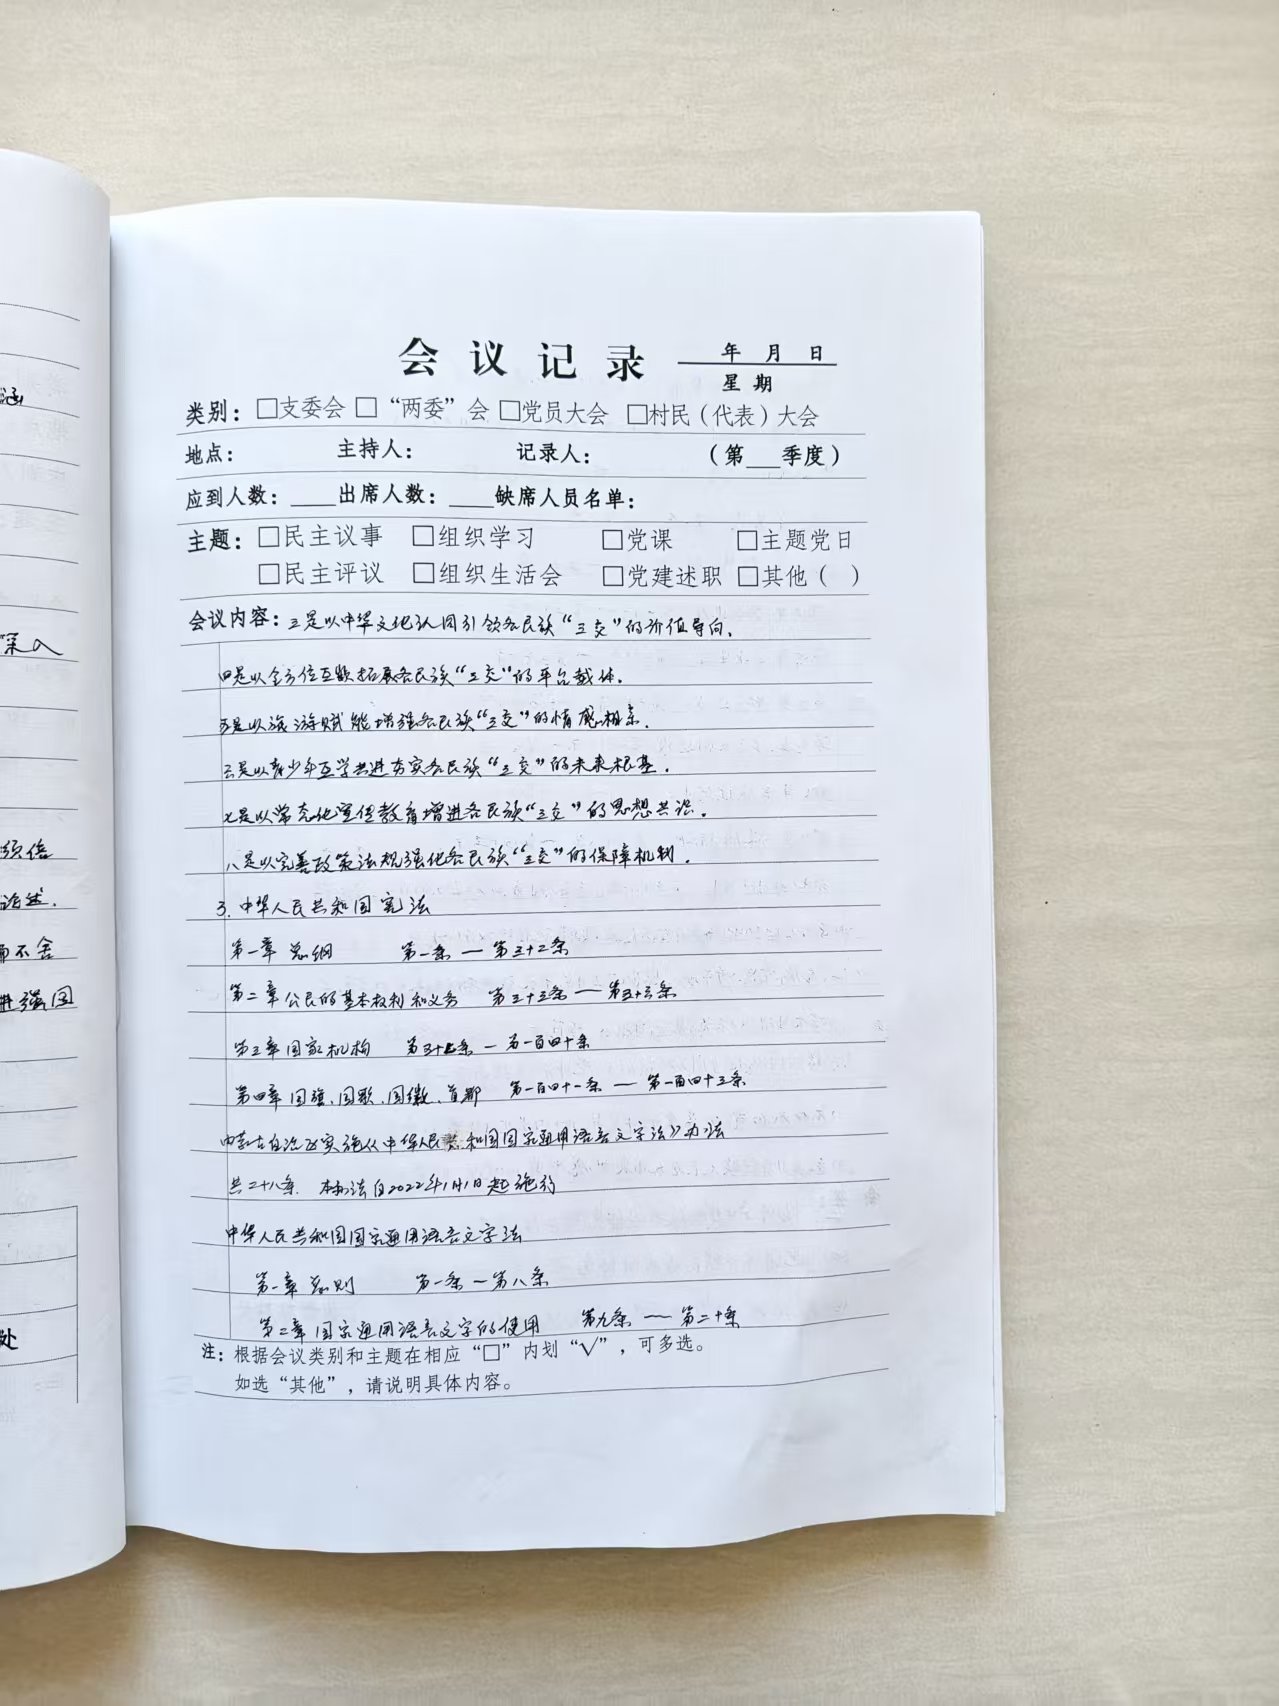 会议记录
年 月 日
星期
类别：□支委会 □“两委”会 □党员大会 □村民（代表）大会
地点： 主持人： 记录人： （第___季度）
应到人数：____出席人数：____缺席人员名单：
主题：□民主议事 □组织学习 □党课 □主题党日
□民主评议 □组织生活会 □党建述职 □其他（ ）
会议内容：三是以中华文化认同引领各民族“三交”的价值导向。
四是以全方位互嵌拓展各民族“三交”的平台载体。
五是以旅游赋能增强各民族“三交”的情感相亲。
六是以青少年互学共进夯实各民族“三交”的未来根基。
七是以常态化宣传教育增进各民族“三交”的思想共识。
八是以完善政策法规强化各民族“三交”的保障机制。
3. 中华人民共和国宪法
第一章 总纲 第一条 — 第三十二条
第二章 公民的基本权利和义务 第三十三条 — 第五十六条
第三章 国家机构 第五十七条 — 第一百四十条
第四章 国旗、国歌、国徽、首都 第一百四十一条 — 第一百四十三条
内蒙古自治区实施《中华人民共和国国家通用语言文字法》办法
共二十八条. 本办法自2022年1月1日起施行
中华人民共和国国家通用语言文字法
第一章 总则 第一条 — 第八条
第二章 国家通用语言文字的使用 第九条 — 第二十条
注：根据会议类别和主题在相应“□”内划“√”，可多选。
如选“其他”，请说明具体内容。
深入
论述.
而不舍
进强国
处